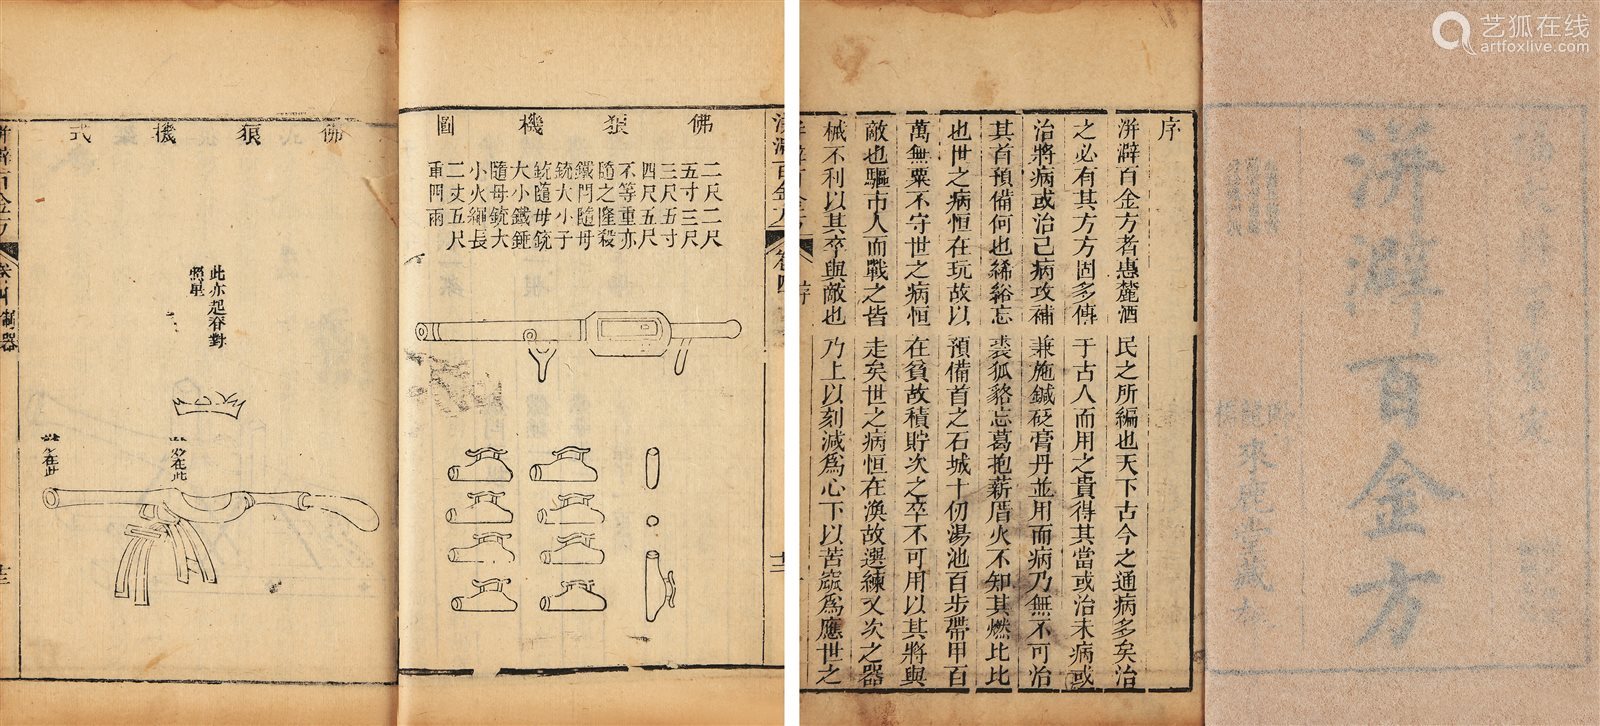 洴澼百金方
來鹿堂藏本
序
洴澼百金方者惠麓酒民之所編也天下古今之通病多矣治
之必有其方方固多傳于古人而用之貴得其當或治未病或
治將病或治已病攻補兼施鍼砭膏丹並用而病乃無不可治
其首預備何也絺綌忘裘狐貉忘葛抱薪厝火不知其燃比比
也世之病恒在玩故以預備首之石城十仞湯池百步帶甲百
萬無粟不守世之病恒在貧故積貯次之卒不可用以其將與
敵也驅市人而戰之皆走矣世之病恒在渙故選練又次之器
械不利以其卒與敵也乃上以刻減爲心下以苦窳爲應世之
佛狼機圖
二尺二尺
五寸三尺
三尺五寸
四尺五尺
不等重亦
隨之隆殺
鐵閂隨母
銃大小子
銃隨母銃
大小鐵錘
隨母銃大
小火繩長
二丈五尺
重四兩
佛狼機式
此亦起脊對
照星
妙在此
妙在此
洴澼百金方 卷四 制器 十三
艺狐在线
artfoxlive.com